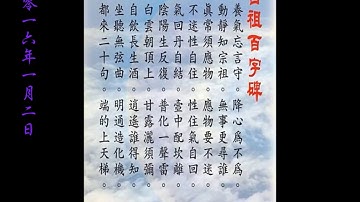 呂祖百字碑
養氣忘言守。降心為不為。
動靜知宗祖。無事更尋誰。
眞常須應物。應物要不迷。
不迷性自住。性住氣自回。
氣回丹自結。壺中配坎離。
陰陽生反復。普化一聲雷。
白雲朝頂上。甘露灑須彌。
自飲長生酒。逍遙誰得知。
坐聽無弦曲。明通造化機。
都來二十句。端的上天梯。
零一六年一月二日